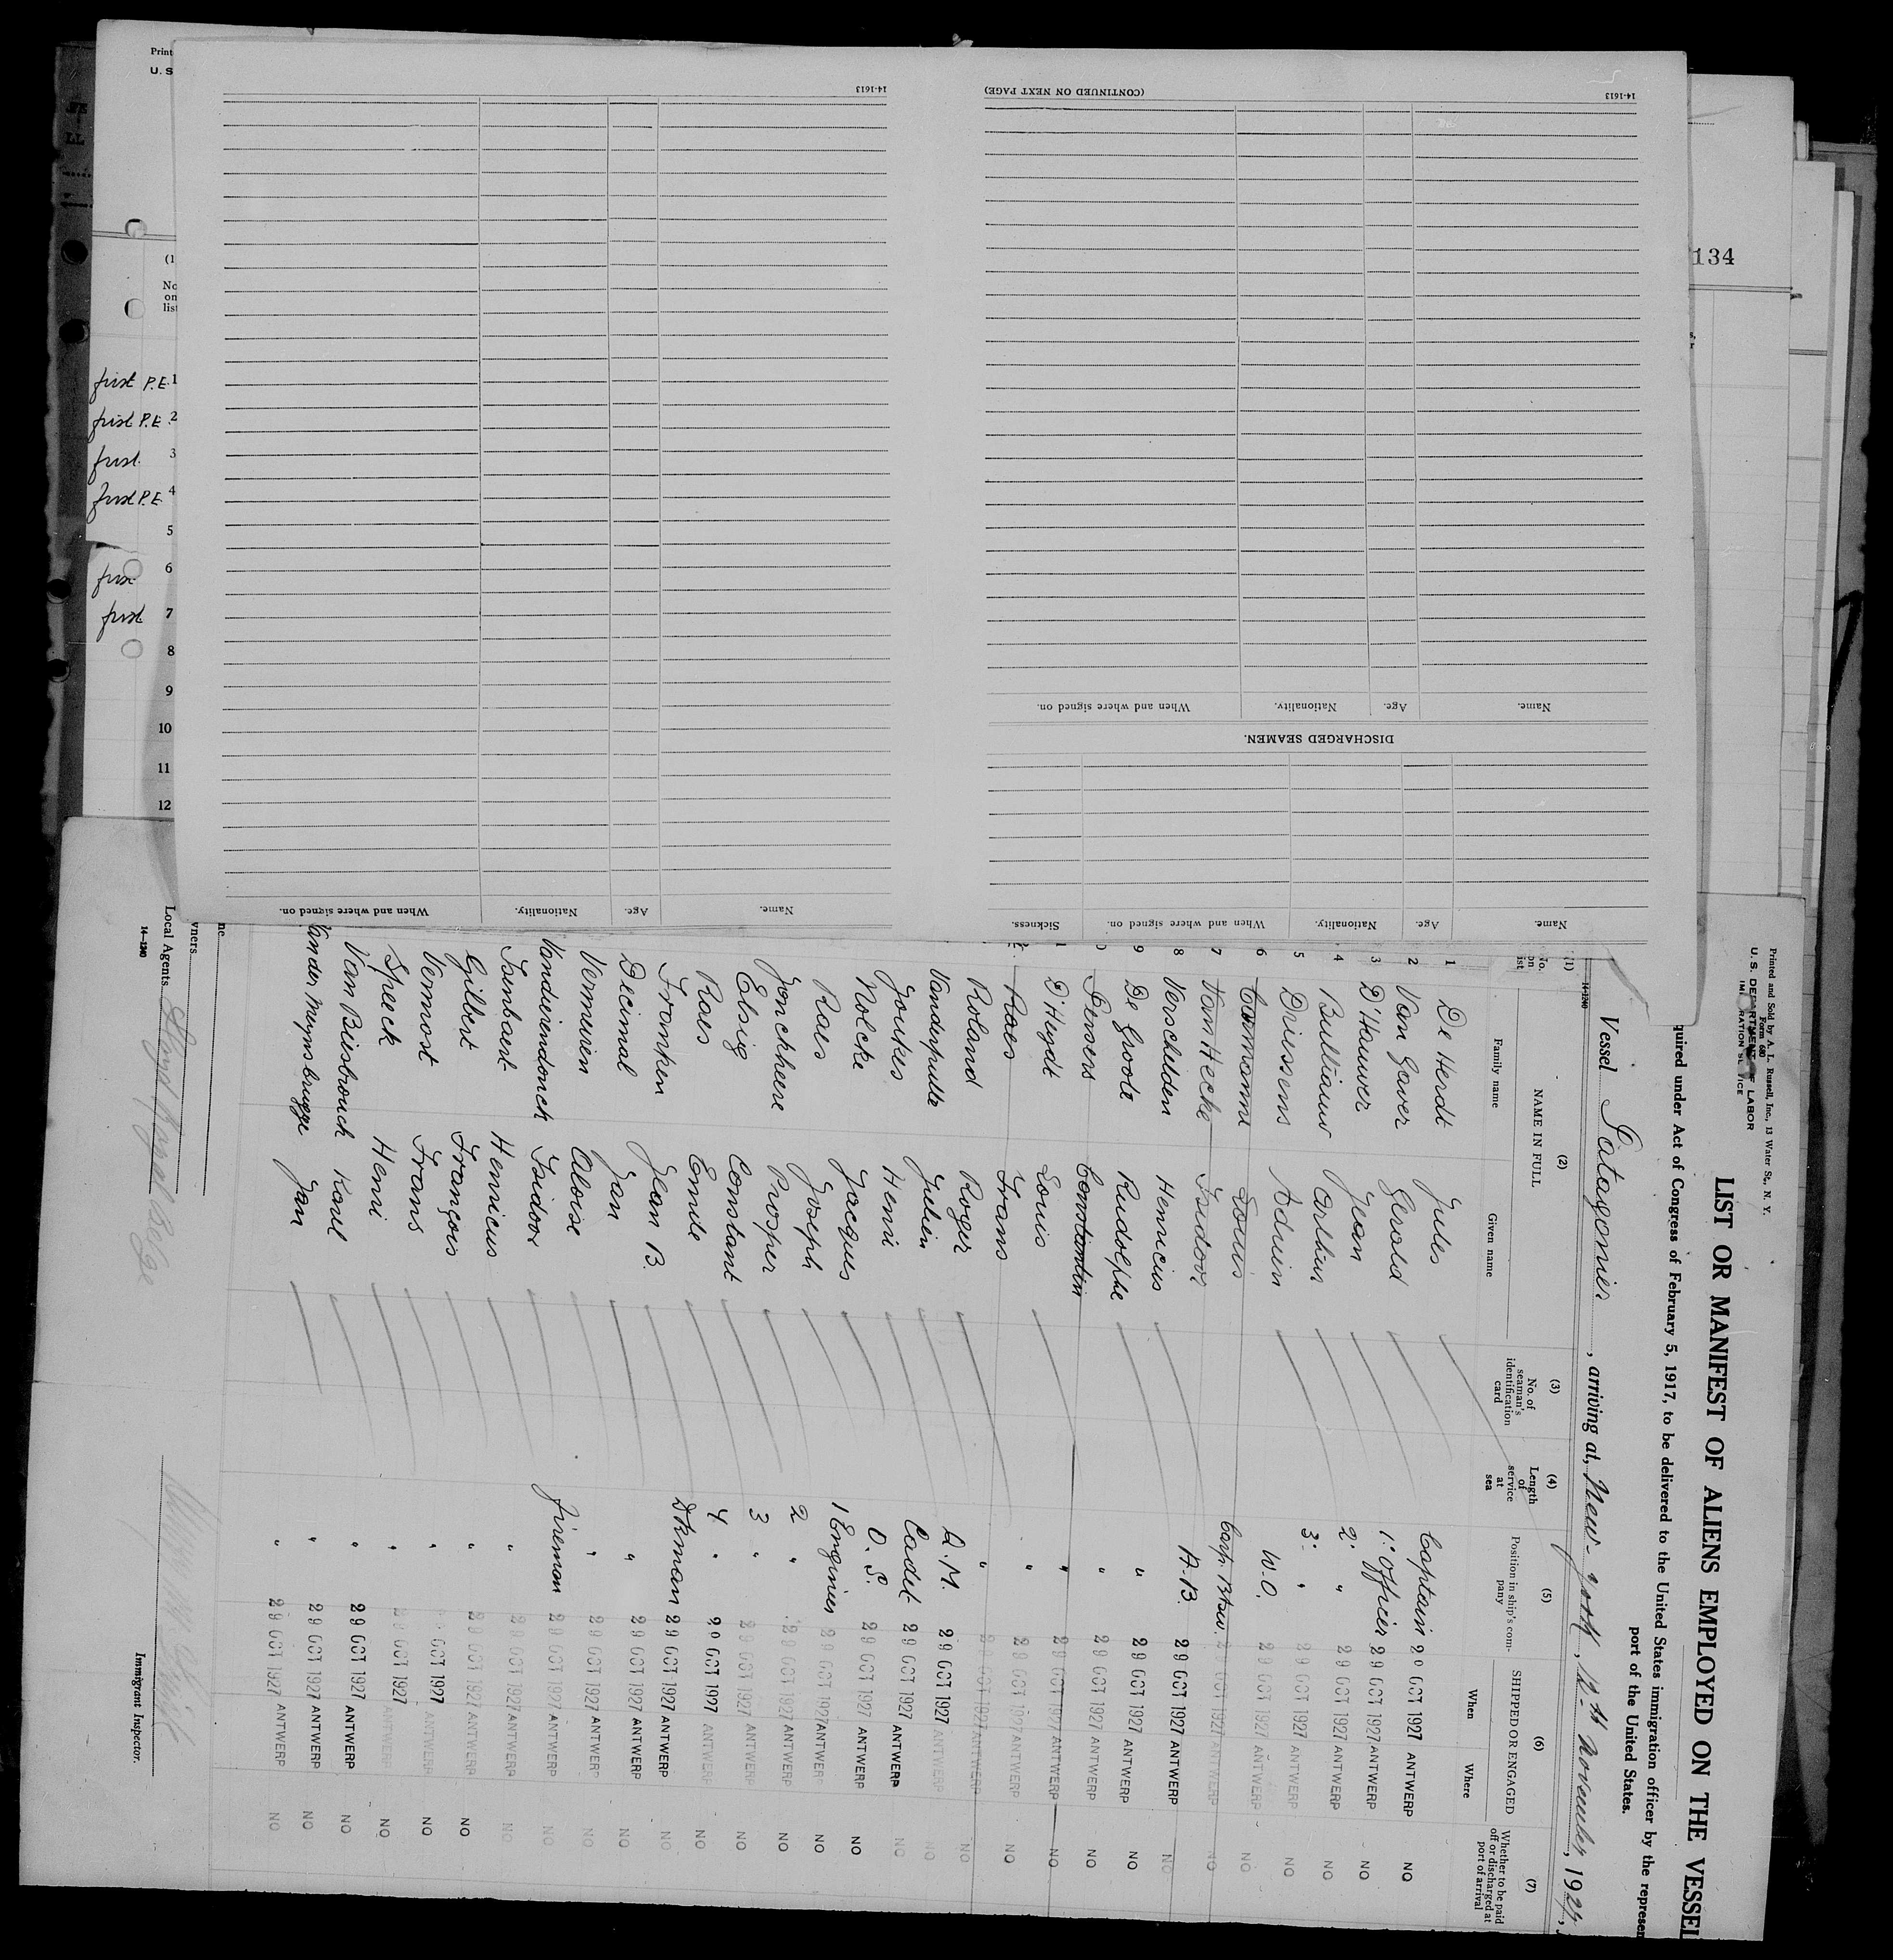 Print
U. S
134
first P.E. 1
first P.E. 2
first 3
first P.E. 4
5
6
first 7
8
9
10
11
12
14-1613
(CONTINUED ON NEXT PAGE)
14-1613
Name. Age. Nationality. When and where signed on.
DISCHARGED SEAMEN.
Name. Age. Nationality. When and where signed on. Sickness.
Name. Age. Nationality. When and where signed on.
Printed and Sold by A. L. Russell, Inc., 13 Water St., N. Y.
Form 680
U. S. DEPARTMENT OF LABOR
LIST OR MANIFEST OF ALIENS EMPLOYED ON THE VESSEL
quired under Act of Congress of February 5, 1917, to be delivered to the United States immigration officer by the represen
port of the United States.
Vessel Patagonier, arriving at, New-York, 12th November, 1927,
14-1240
(1) (2) (3) (4) (5) (6) (7)
NAME IN FULL
Family name Given name
No. of seaman's identification card
Length of service at sea
Position in ship's company
SHIPPED OR ENGAGED
When Where
Whether to be paid off or discharged at port of arrival
1 De Herdt Jules Captain 29 OCT 1927 ANTWERP NO
2 Van Gaver Gerold 1: Officer 29 OCT 1927 ANTWERP NO
3 D'Hauwer Jean 2: " 29 OCT 1927 ANTWERP NO
4 Bulliauw Arthur 3: " 29 OCT 1927 ANTWERP NO
5 Driessens Aduin W.O. 29 OCT 1927 ANTWERP NO
6 Louis 29 OCT 1927 ANTWERP NO
7 Van Hecke Isidoor 29 OCT 1927 ANTWERP NO
8 Verschelden Henricus A.B. 29 OCT 1927 ANTWERP NO
9 De Groote Rudolphe " 29 OCT 1927 ANTWERP NO
Pensers Constantin " 29 OCT 1927 ANTWERP NO
D'Heydt Louis " 29 OCT 1927 ANTWERP NO
Raes Frans " 29 OCT 1927 ANTWERP NO
Roland Roger " 29 OCT 1927 ANTWERP NO
Vandenputte Julien 29 OCT 1927 ANTWERP NO
Joukes Henri Cadet 29 OCT 1927 ANTWERP NO
Nolcke Jacques O.S. 29 OCT 1927 ANTWERP NO
Raes Joseph 1 Enginier 29 OCT 1927 ANTWERP NO
Jonckheere Prosper 2 " 29 OCT 1927 ANTWERP NO
Elsig Constant 3 " 29 OCT 1927 ANTWERP NO
Raes Emile 4 " 29 OCT 1927 ANTWERP NO
Franken Jean B. Dkman 29 OCT 1927 ANTWERP NO
Decimal Jan " 29 OCT 1927 ANTWERP NO
Vermeiren Aloise " 29 OCT 1927 ANTWERP NO
Vandeirendonck Isidoor Firemon 29 OCT 1927 ANTWERP NO
Henricus " 29 OCT 1927 ANTWERP NO
Gilbert François " 29 OCT 1927 ANTWERP NO
Vermost Frans " 29 OCT 1927 ANTWERP NO
Speeck Henri " 29 OCT 1927 ANTWERP NO
Van Biesbrouck Karel " 29 OCT 1927 ANTWERP NO
Vander Meynsbrugge Jan " 29 OCT 1927 ANTWERP NO
wners
Local Agents Lloyd Royal Belge
14-1240
Immigrant Inspector.